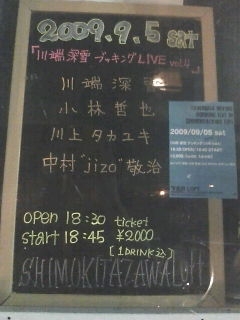 2009.9.5 sat
「川端深雪 ブッキングLIVE vol.4」
川端 深雪
小林 哲也
川上 タカユキ
中村 "jizo" 敬治
open 18:30 ticket
start 18:45 ¥2000
[1DRINK込]
SHIMOKITAZAWA Loft
2009/09/05 sat